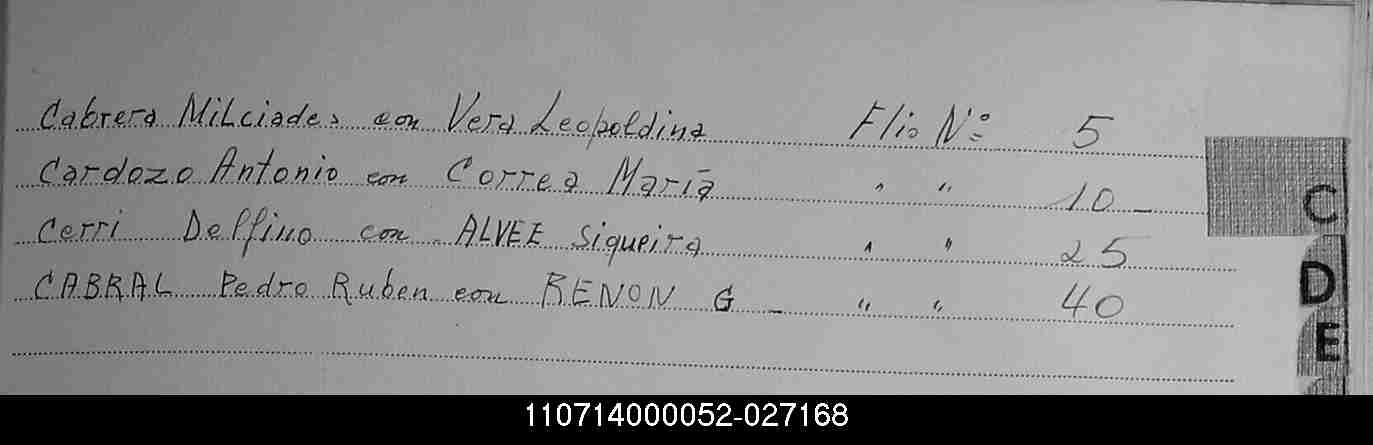 Cabrera Milciades con Vera Leopoldina Flio Nº 5
Cardozo Antonio con Correa María " " 10 -
Cerri Delfino con ALVEE Siqueira " " 25
CABRAL Pedro Ruben con RENON G - " " 40
C
D
E
110714000052-027168